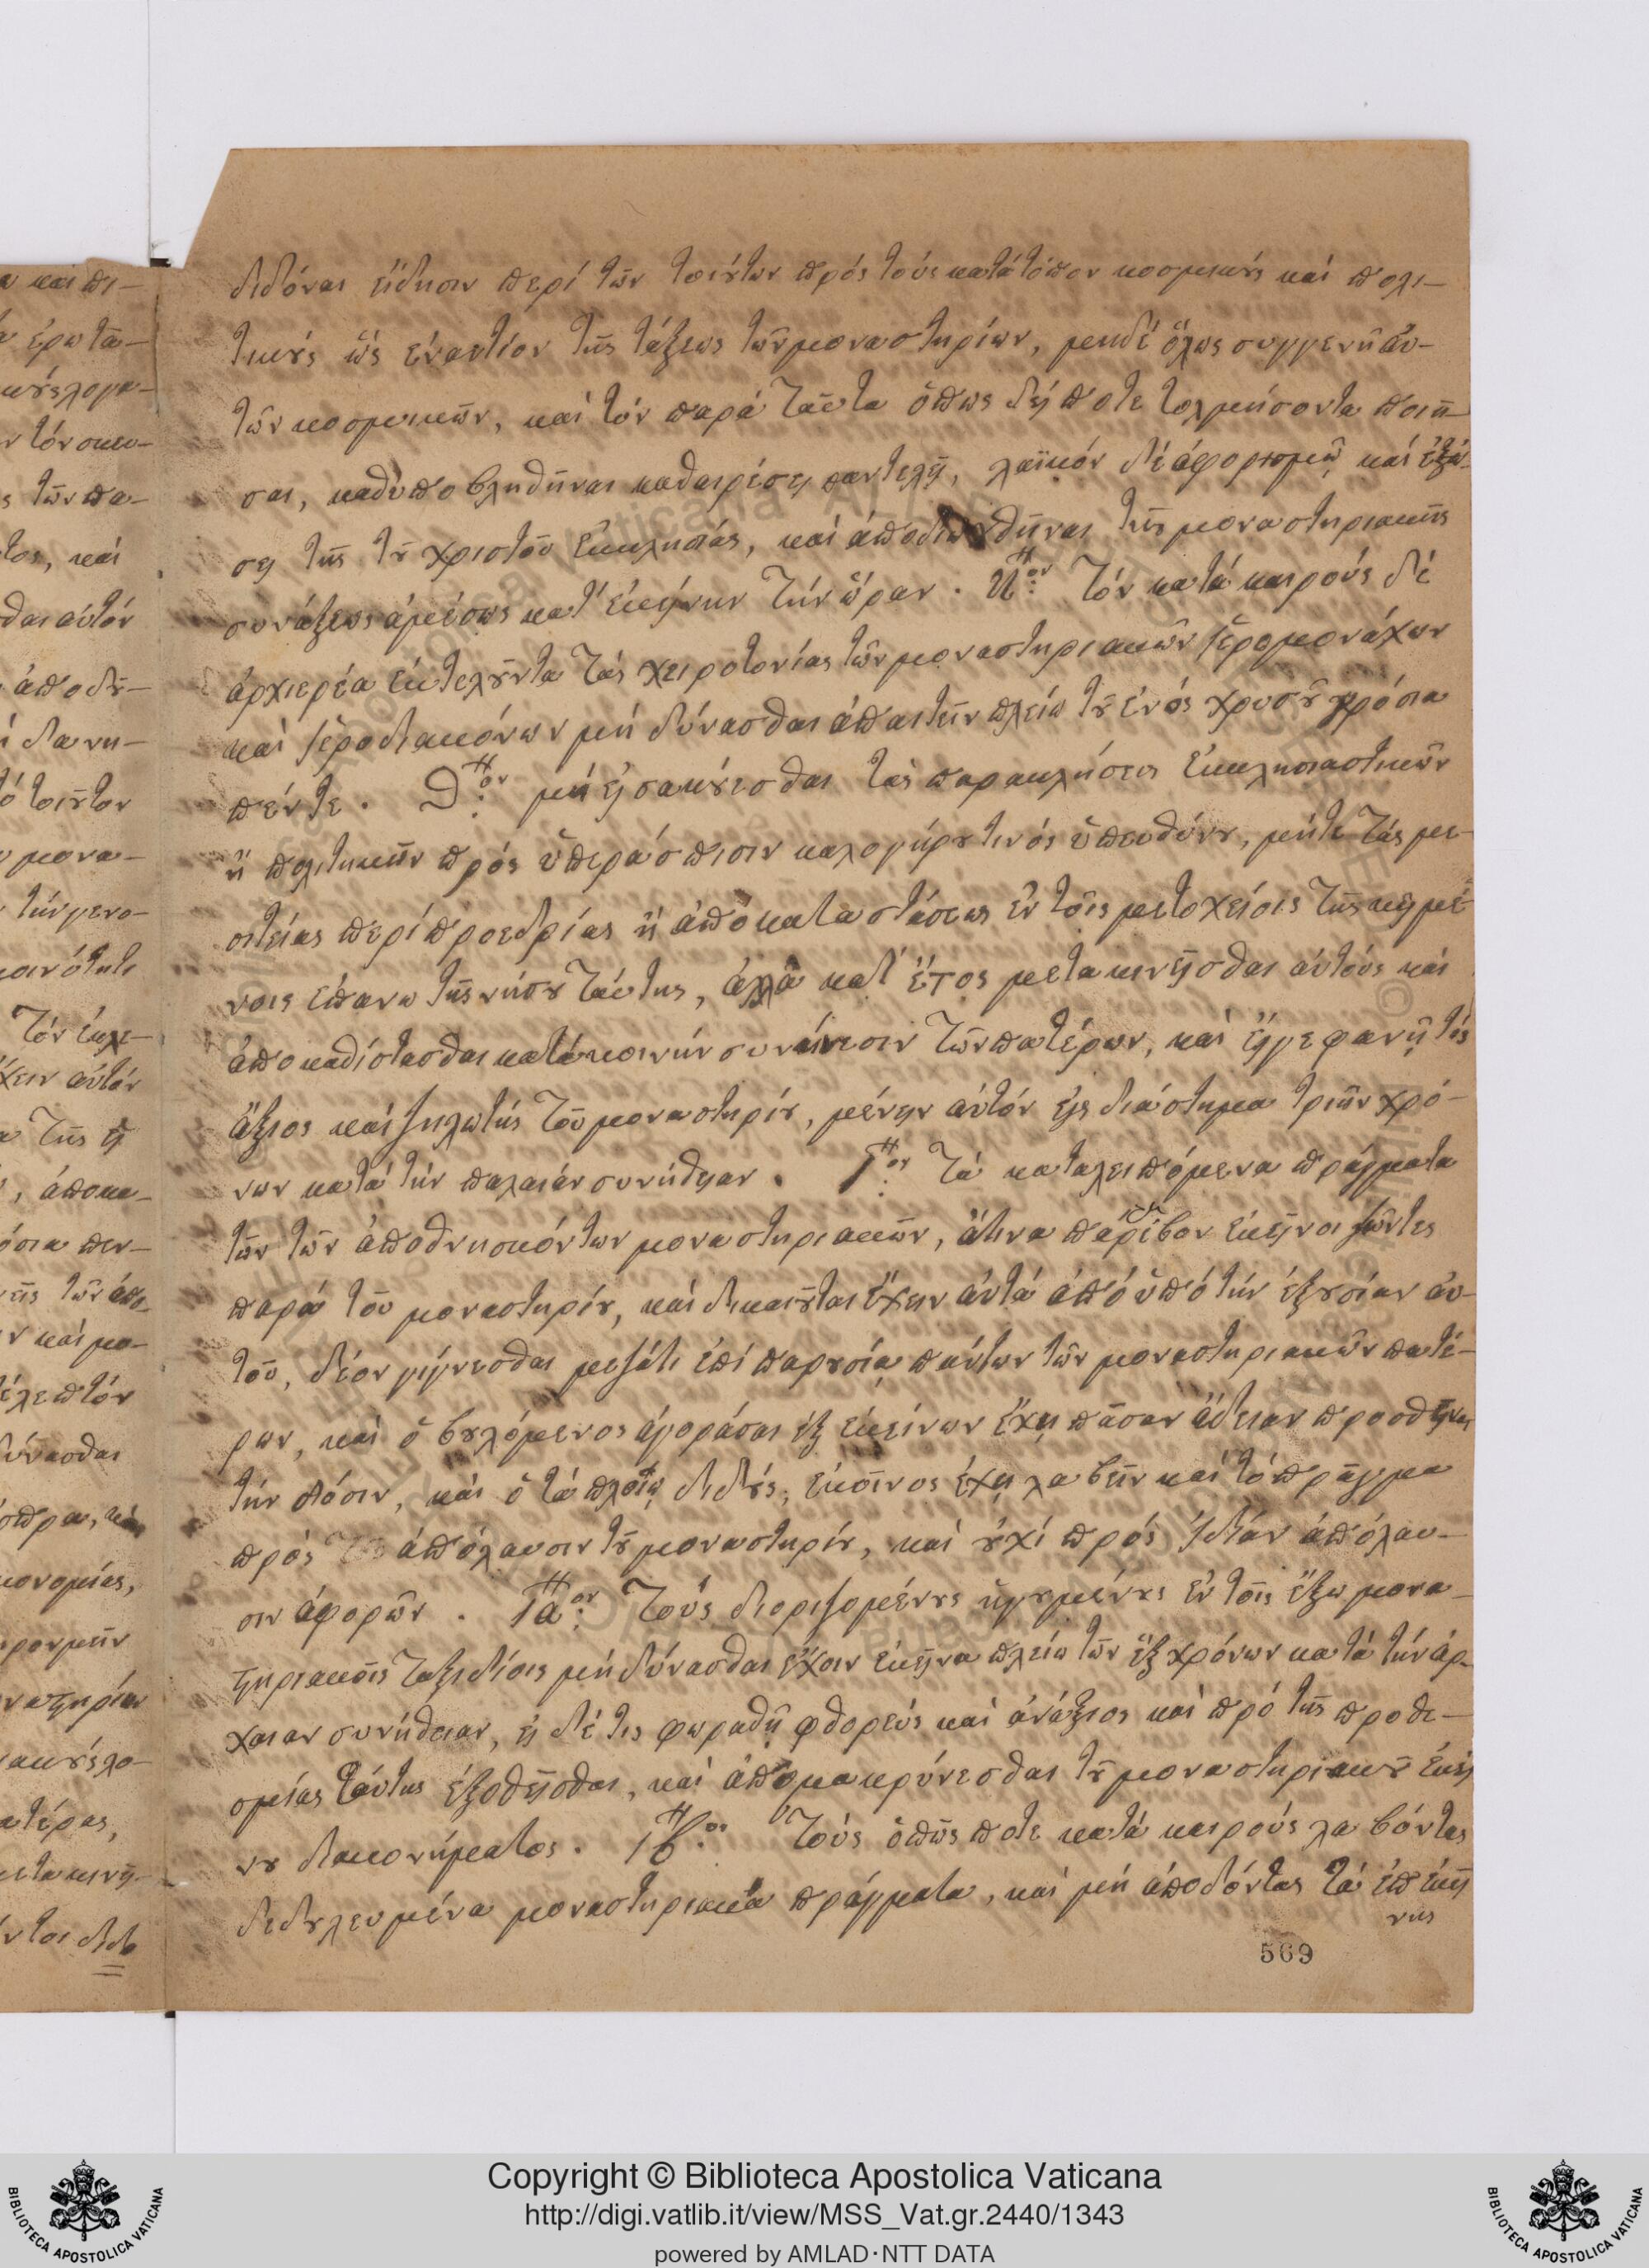 διδόναι εἴδησιν περί τῶν τοιούτων πρός τούς κατά τόπον κοσμικούς καί πολι-
τικούς ὡς ἐναντίον τῆς τάξεως τῶν μοναστηρίων, μηδέ ὅλως συγγενῆ αὐ-
τῶν κοσμικῶν, καί τόν παρά ταῦτα ὅπως δήποτε τολμήσοντα ποιῆ-
σαι, καθυποβληθῆναι καθαιρέσει παντελῆ, λαϊκόν δέ ἀφορισμῷ καί ἐξώ-
σει τῆς τοῦ χριστοῦ ἐκκλησίας, καί ἀποδιωχθῆναι τῆς μοναστηριακῆς
συνάξεως ἀμέσως κατ' ἐκείνην τήν ὥραν. Η:ον Τόν κατά καιρούς δέ
ἀρχιερέα ἐκτελοῦντα τάς χειροτονίας τῶν μοναστηριακῶν ἱερομονάχων
καί ἱεροδιακόνων μή δύνασθαι ἀπαιτεῖν πλείω τοῦ ἑνός χρυσοῦ γρόσια
πέντε. Θ:ον μή εἰσακούεσθαι τάς παρακλήσεις ἐκκλησιαστικῶν
ἤ πολιτικῶν πρός ὑπεράσπισιν καλογήρου τινός ὑπευθύνου, μήτε τάς με-
σιτείας περί προεδρίας ἤ ἀποκαταστάσεως ἐν τοῖς μετοχείοις τῆς κειμέ-
νοις ἐπάνω τῆς νήσου ταύτης, ἀλλά κατ' ἔτος μετακινεῖσθαι αὐτούς καί
ἀποκαθίστασθαι κατά κοινήν συναίνεσιν τῶν πατέρων, καί εἴγε φανῇ τίς
ἄξιος καί ζηλωτής τοῦ μοναστηρίου, μένειν αὐτόν εἰς διάστημα τριῶν χρό-
νων κατά τήν παλαιάν συνήθειαν. Ι:ον Τά καταλειπόμενα πράγματα
τῶν τῶν ἀποθνησκόντων μοναστηριακῶν, ἅτινα ἐκεῖνοι ζῶντες
παρά τοῦ μοναστηρίου, καί δικαιοῦται ἔχειν αὐτά ἀπό ὑπό τήν ἐξουσίαν αὐ-
τοῦ, δέον γίγνεσθαι μεζάτι ἐπί παρουσίᾳ πάντων τῶν μοναστηριακῶν πατέ-
ρων, καί ὁ βουλόμενος ἀγοράσαι ἐξ ἐκείνων ἔχῃ πᾶσαν ἄδειαν προσθεῖναι
τήν δόσιν, καί ὁ τά πλείω διδούς, ἐκεῖνος ἔχῃ λαβεῖν καί τό πρᾶγμα
πρός ἀπόλαυσιν τοῦ μοναστηρίου, καί οὐχί πρός ἰδίαν ἀπόλαυ-
σιν ἀφορῶν. ΙΑ:ον Τούς διοριζομένους ἡγουμένους ἐν τοῖς ἔξω μονα-
στηριακοῖς ταξιδίοις μή δύνασθαι ἔχειν ἐκεῖνα πλείω τῶν ἕξ χρόνων κατά τήν ἀρ-
χαιαν συνήθειαν, εἰ δέ τις φωραθῇ φθορεύς καί ἀνάξιος καί πρό τῆς προθε-
σμίας ταύτης ἐξοθεῖσθαι, καί ἀπομακρύνεσθαι τοῦ μοναστηριακοῦ ἐκεί
νου διακονήματος. ΙΒ:ον Τούς ὁπῶς ποτε κατά καιρούς λαβόντας
δεδουλευμένα μοναστηριακά πράγματα, καί μή ἀποδόντας τά ἐπ ἐκεί
νης
569
Copyright © Biblioteca Apostolica Vaticana
http://digi.vatlib.it/view/MSS_Vat.gr.2440/1343
powered by AMLAD·NTT DATA
BIBLIOTECA APOSTOLICA VATICANA
BIBLIOTECA APOSTOLICA VATICANA